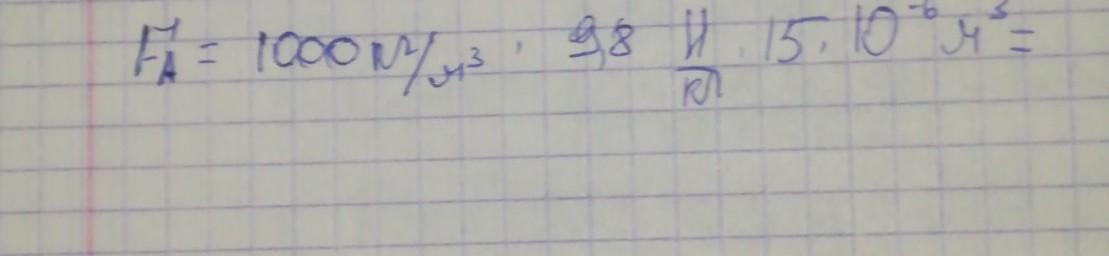 F_A = 1000 кг/м³ · 9,8 Н/кг · 15 · 10⁻⁶ м³ =